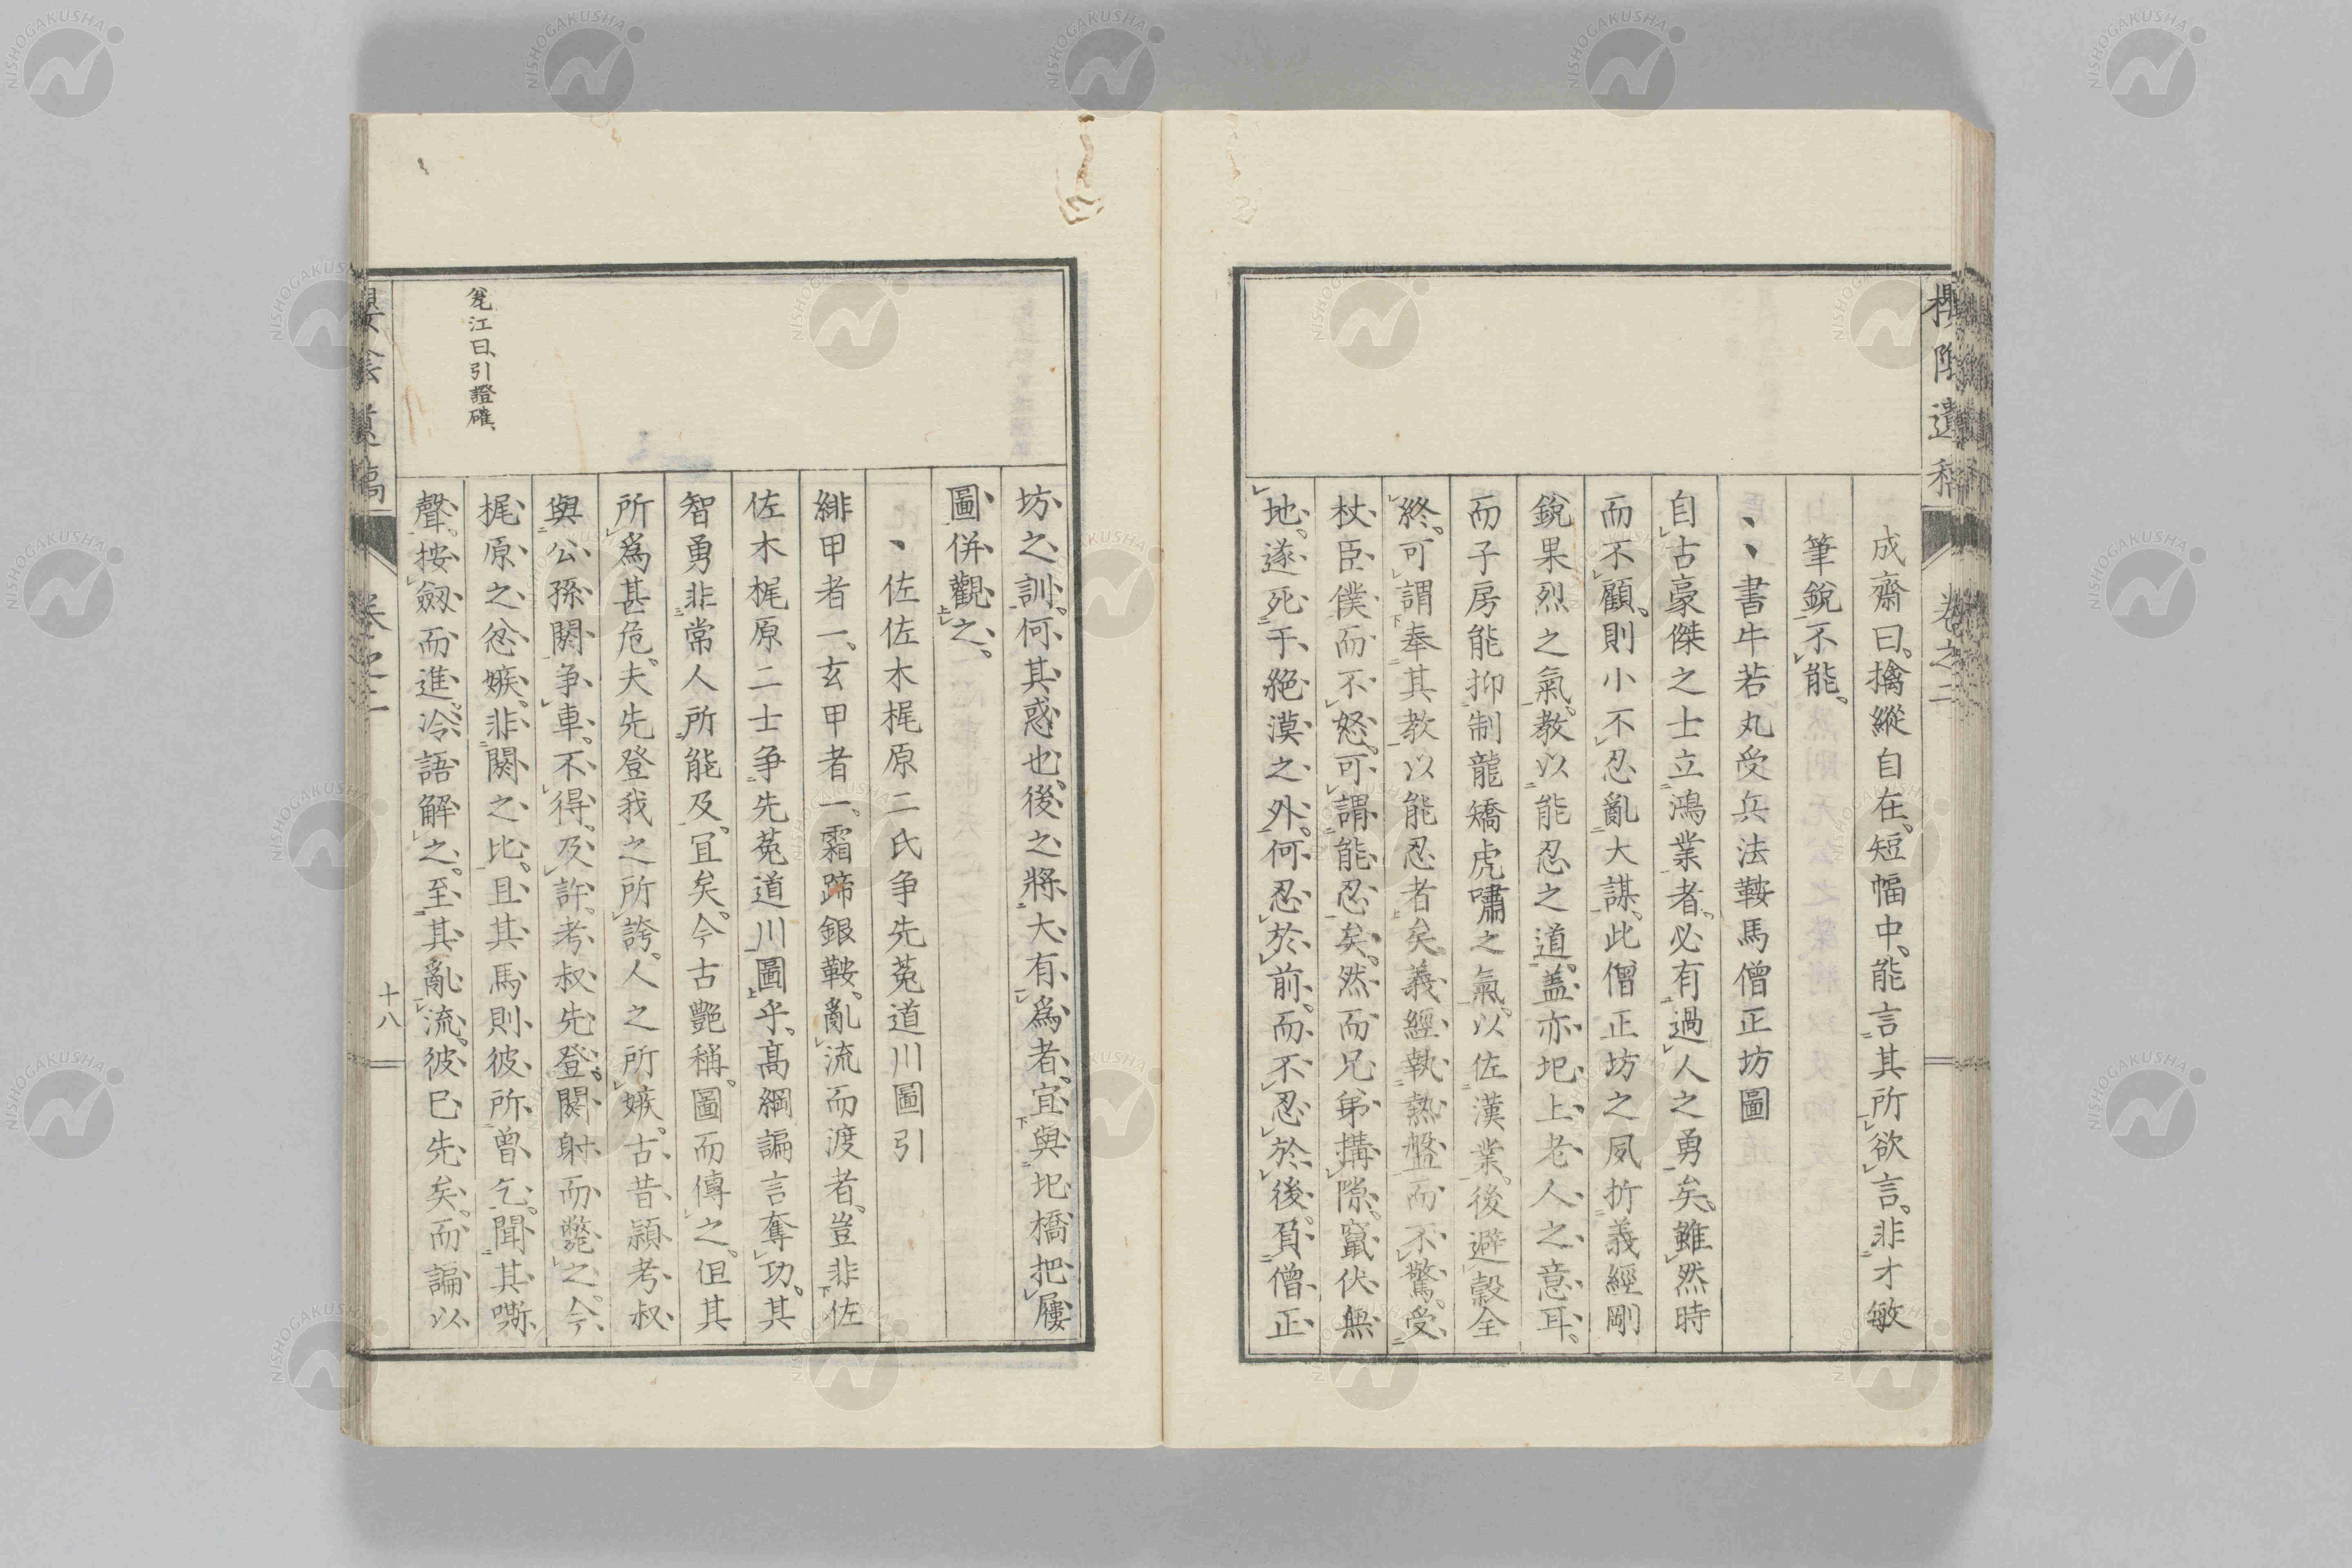 成齋曰。擒縱自在。短幅中。能言其所欲言。非才敏
筆銳不能。
書牛若丸受兵法鞍馬僧正坊圖
自古豪傑之士立鴻業者。必有過人之勇矣。雖然時
而不顧。則小不忍亂大謀。此僧正坊之夙折義經剛
銳果烈之氣。教以能忍之道。蓋亦圯上老人之意耳。
而子房能抑制龍矯虎嘯之氣。以佐漢業。後避穀全
終。可謂奉其教以能忍者矣。義經執熱盤而不驚。受
杖臣僕而不怒。可謂能忍矣。然而兄弟搆隙。竄伏無
地。遂死于絕漠之外。何忍於前。而不忍於後。負僧正
坊之訓。何其惑也。後之將大有爲者。宜與圯橋把屨
圖併觀之。
佐佐木梶原二氏争先菟道川圖引
緋甲者一、玄甲者一。霜蹄銀鞍。亂流而渡者。豈非佐
佐木梶原二士争先菟道川圖乎。高綱諞言奪功。其
智勇非常人所能及。宜矣。今古艷稱。圖而傳之。但其
所爲甚危。夫先登我之所誇。人之所嫉。古昔潁考叔
與公孫閼争車。不得及許。考叔先登。閼射而斃之。今
梶原之忿嫉。非閼之比。且其馬則彼所曾乞。聞其嘶
聲。按劔而進。冷語解之。至其亂流。彼已先矣。而諞以
毵江曰、引證確、
櫻陰遺稿
卷之二
十八